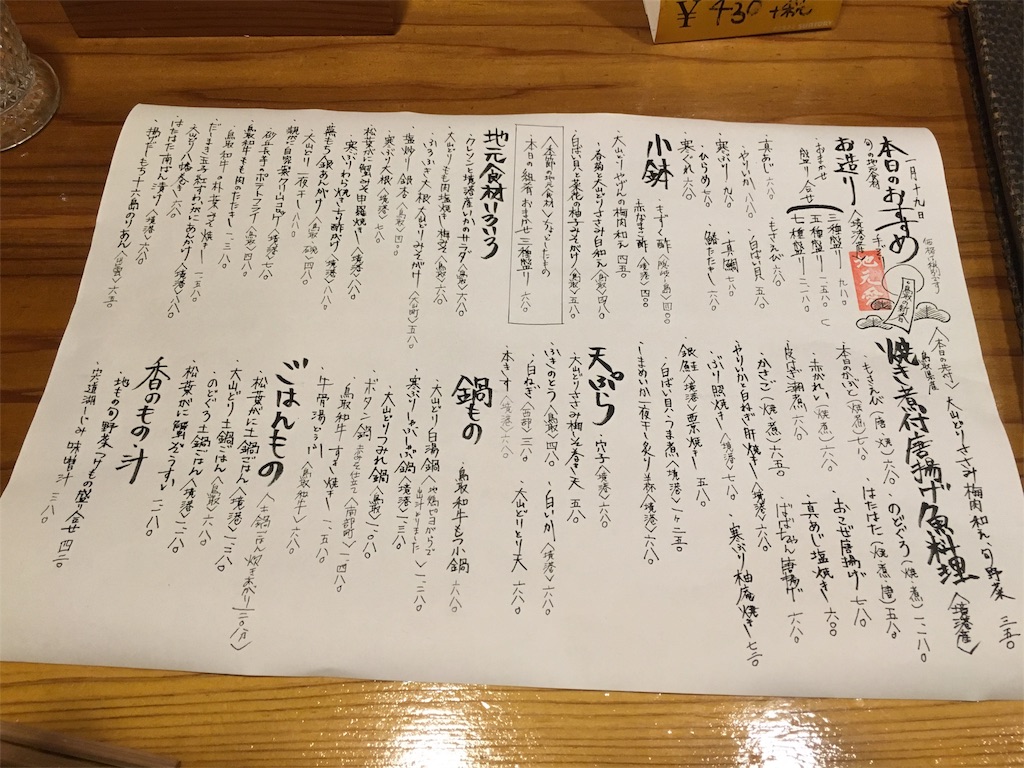 ¥430+税
一月十九日
本日のおすすめ
旬の地食材
価格は税別です
鳥取の新春
お造り〈境港産〉
おまかせ盛り合せ
三種盛り 九八〇
五種盛り 一五八〇
七種盛り 二二八〇
・真あじ 六八〇
・もさえび 六八〇
・やりいか 六八〇
・白ばい貝 五八〇
・寒ぶり 九八〇
・真鯛 七八〇
・ひらめ 七八〇
・鯵たたき 六八〇
・寒ぐれ 六八〇
小鉢
・もずく酢〈隠岐の島〉四〇〇
・赤なまこ酢〈境港〉四八〇
・大山どりやげんの梅肉和え 四五〇
・春菊と大山どりささみ白和え〈鳥取〉四八〇
・白ばい貝と菜花の柚子みそがけ〈鳥取〉五八〇
〈季節の地元食材〉をちょっとしたもの
・本日の銘肴おまかせ三種盛り 六八〇
地元食材いろいろ
・クレソンと境港産いかのサラダ〈鳥取〉六八〇
・大山どりもも肉塩焼き 梅祭り 六八〇
・ふろふき大根〈大山どりみそがけ〉〈大山町〉五八〇
・塩炒り銀杏〈鳥取〉四八〇
・寒ぶり大根〈境港〉七八〇
・松葉がに蟹みそ甲羅焼き 一一八〇
・寒ぶりわら焼きちり酢がけ〈境港〉八八〇
・大山どり一夜干し〈鳥取〉四八〇
・親がに自家製クリームコロッケ〈境港〉八八〇
・砂丘長芋のポテトフライ〈鳥取〉六八〇
・鳥取和牛もも肉のたたき 一二八〇
・鳥取和牛の朴葉みそ焼き 一二八〇
・だしまき玉子松葉がにあんかけ〈境港〉一一八〇
・大山どり八幡巻き 六八〇
・はたはた南ばん漬け〈境港〉六八〇
・揚げだしもち十六島のりあん
焼き煮付唐揚げ魚料理〈境港産〉
〈本日の先付〉大山どりささみ梅肉和え・旬野菜 三五〇
鳥取県産
・もさえび(唐・焼)六八〇
・のどぐろ(焼・煮)一二八〇
・本日のかぶと(焼・煮)六八〇
・はたはた(焼・煮・唐)五八〇
・赤がれい(焼・煮)一二八〇
・おこぜ唐揚げ 七八〇
・真あじ塩焼き 六八〇
・かさご(焼・煮)六八〇
・ばばちゃん唐揚げ 六八〇
・やりいかと白ねぎ肝焼き〈境港〉六八〇
・寒ぶり柚庵焼き 七八〇
・ぶり照焼き 七八〇
・銀鮭〈境港〉西京焼き 五八〇
・白ばい貝うま煮〈境港〉一、二五〇
・しまめいか一夜干し炙り〈境港〉六八〇
天ぷら
・穴子〈境港〉六八〇
・大山どりささみ梅しそ巻き天 五八〇
・ふきのとう〈鳥取〉四八〇
・白いか〈境港〉六八〇
・白ねぎ〈西部〉三八〇
・大山どりとり天 六八〇
・本きす〈境港〉六八〇
鍋もの
・鳥取和牛もつ小鍋 六八〇
・大山どり白湯鍋〈地鶏ピヨがらでだし汁とりました〉一二八〇
・寒ぶりしゃぶしゃぶ鍋〈境港〉一二八〇
・大山どりつみれ鍋〈鳥取〉一〇八〇
・ボタン鍋 赤みそ仕立て〈南部町〉一四八〇
・鳥取和牛 すき焼き 一五八〇
・牛骨湯とうふ〈鳥取和牛〉六八〇
ごはんもの
〈土鍋ごはん炊きあがり三〇分〉
・松葉がに土鍋ごはん〈境港〉一二八〇
・大山どり土鍋ごはん〈鳥取〉六八〇
・のどぐろ土鍋ごはん〈境港〉一三八〇
・松葉がに蟹ぞうすい 一二八〇
香のもの・汁
・地もの旬野菜つけもの盛り合せ 四二〇
・宍道湖しじみ味噌汁 三八〇